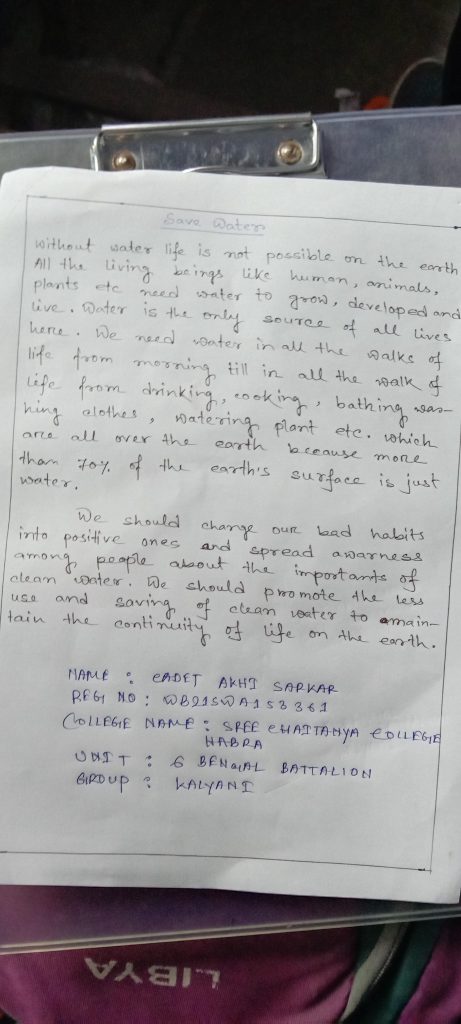 Save Water
without water life is not possible on the earth
All the living beings like human, animals,
plants etc need water to grow, developed and
live. Water is the only source of all lives
here. We need water in all the walks of
life from morning till in all the walk of
life from drinking, cooking, bathing was-
hing clothes, watering plant etc. which
are all over the earth because more
than 70% of the earth's surface is just
water.
We should change our bad habits
into positive ones and spread awarness
among people about the importants of
clean water. We should promote the less
use and saving of clean water to amain-
tain the continuity of life on the earth.
NAME : CADET AKHI SARKAR
REGI NO : WB21SWA153361
COLLEGE NAME : SREE CHAITANYA COLLEGE
HABRA
UNIT : 6 BENGAL BATTALION
GROUP : KALYANI
LIBYA